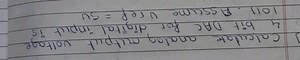 Calculate analog output voltage
4 bit DAC for digital input is
1011. Assume Vref = 5V